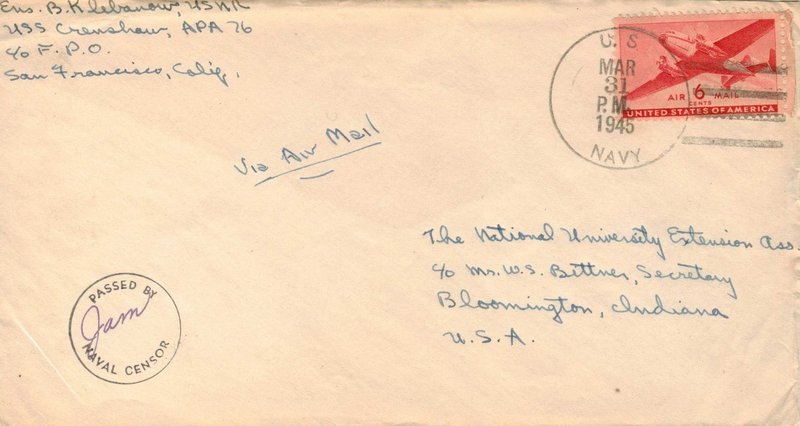 Ens. B. Klebanow, USNR
USS Crenshaw, APA 76
c/o F.P.O.
San Francisco, Calif.
U.S.
MAR
31
P.M.
1945
NAVY
AIR 6 MAIL
CENTS
UNITED STATES OF AMERICA
Via Air Mail
The National University Extension Ass.
c/o Mr. W.S. Bittner, Secretary
Bloomington, Indiana
U.S.A.
PASSED BY
Jam
NAVAL CENSOR